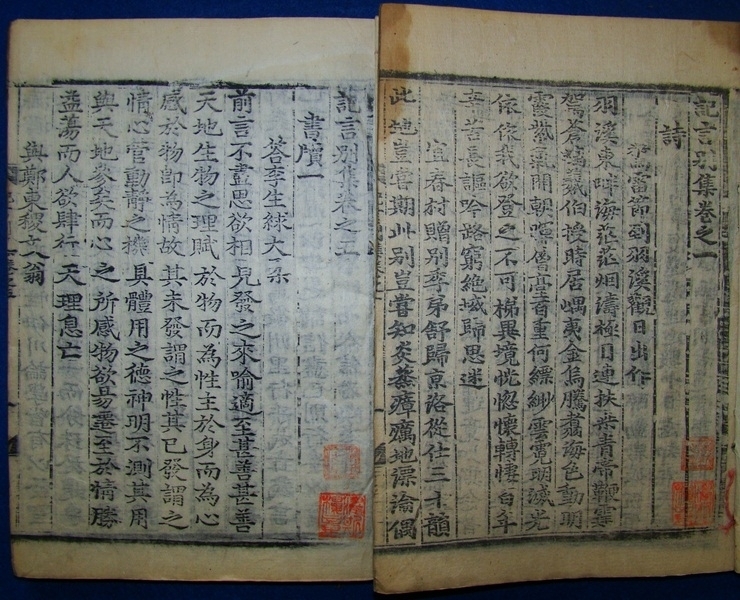 記言別集卷之一
詩
到羽溪觀日出作
羽溪東畔海茫茫烟濤極目連扶桒青帝鞭寒
駕蒼螭羲伯授時居嵎夷金烏騰翥海色動明
霞紫氣開朝暉僊臺者重何縹緲雲霓明滅光
依依我欲登之不可梯異境恍惚懷轉悽百年
辛苦長謳吟路窮絶域歸思迷
宜春村贈別季弟舒歸京洛從仕三十韻
此地豈嘗期此別豈嘗知炎蒸瘴癘地漂淪偶
記言別集卷之五
書牘一
答李生絿大柔
前言不盡思欲相見發之來喻適至甚善甚善
天地生物之理賦於物而為性主於身而為心
感於物即為情故其未發謂之性其已發謂之
情心管動靜之機具體用之德神明不測其用
與天地參矣而心之所感物欲易遷至於情勝
益蕩而人欲肆行天理息亡
與鄭東稷文翁